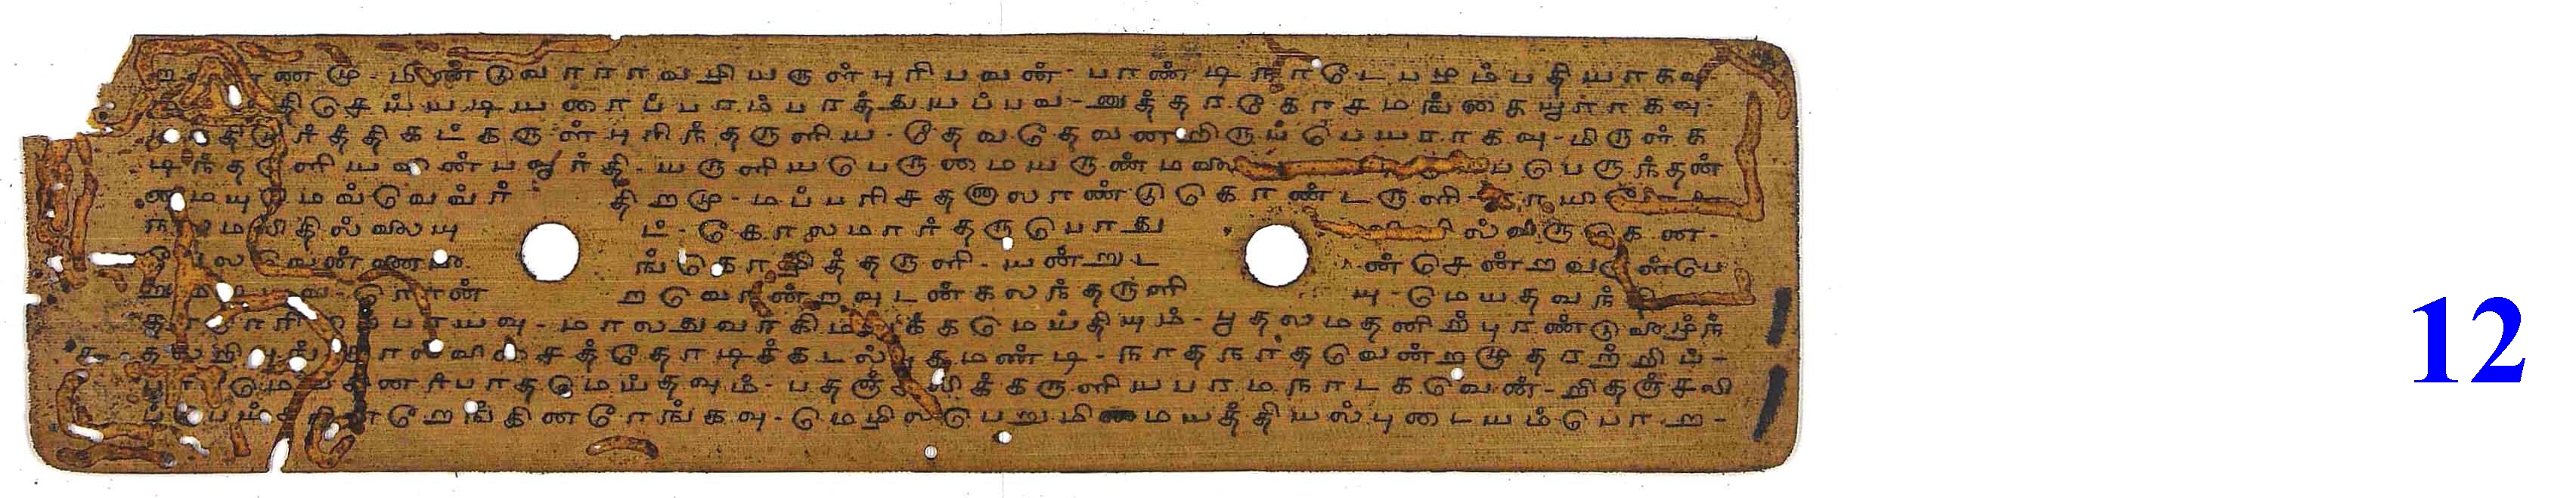 ணமு-மீண்டுவாராவழியருள்புரிபவன்-பாண்டிநாடேபழம்பதியாகவு
திசெய்யடியரைப்பரம்பரத்துயப்பவ-னுத்தரகோசமங்கையூராகவு-
திமூர்த்திகட்கருள்புரிந்தருளிய-தேவதேவனறிருப்பெயராகவு-மிருள்க
டிந்தருளியவின்பவூர்தி-யருளியபெருமையருண்மலை பபெருந்தன்
மையுமெவ்வெவர் திறமு-மப்பரிசதனாலாண்டுகொண்டருளி-நாயி
நலமலிதில்லையு ட்-கோலமார்தருபொது ல்வருகென-
லவென்னை ங்கொழித்தருளி-யன்றுட ன்சென்றவருள்பெ
றவொன்றவுடன்கலந்தருளி யு-மெயதவந்
பாயவு-மாலதுவாகிமயக்கமெய்தியும்-பூதலமதனிற்புரண்டுவீழ்ந்
தலறியுங்கால்விசைத்தோடிக்கடல்புகமண்டி-நாதநாதவென்றழுதரற்றிப்-
பா மெ னர்பாதமெய்தவும்-பதஞ்சலிக்கருளியபரமநாடகவென்-றிதஞ்சலி
ப்பெய்த றேங்கினரேங்கவு-மெழில்பெறுமிமையத்தியல்புடையம்பொற-
12